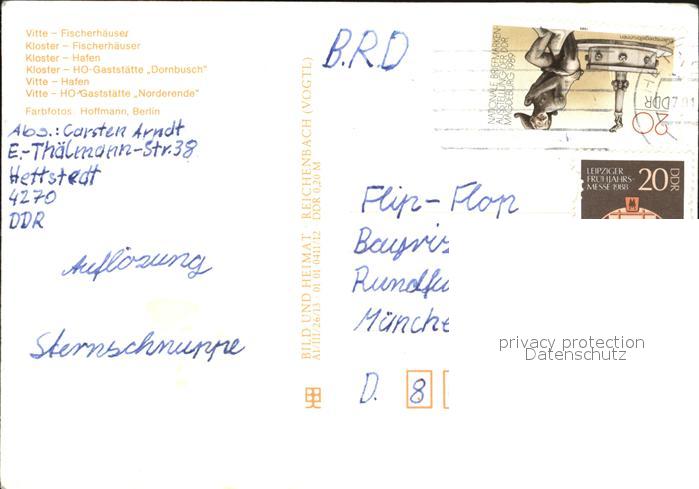 Vitte – Fischerhäuser
Kloster – Fischerhäuser
Kloster – Hafen
Kloster – HO-Gaststätte „Dornbusch"
Vitte – Hafen
Vitte – HO-Gaststätte „Norderende"
Farbfotos: Hoffmann, Berlin
Abs.: Carsten Arndt
E.-Thälmann-Str. 38
Hettstedt
4270
DDR
Auflözung
Sternschnuppe
BILD UND HEIMAT · REICHENBACH (VOGTL)
A1/III/26/13 · 01 01 0411/12 DDR 0,20 M
B.R.D
NATIONALE BRIEFMARKEN-
AUSSTELLUNG DER DDR
MAGDEBURG 1989
DDR
20
LEIPZIGER
FRÜHJAHRS-
MESSE 1988
20
DDR
Flip-Flop
Bayris
Rundfu
Münche
D. 8
privacy protection
Datenschutz